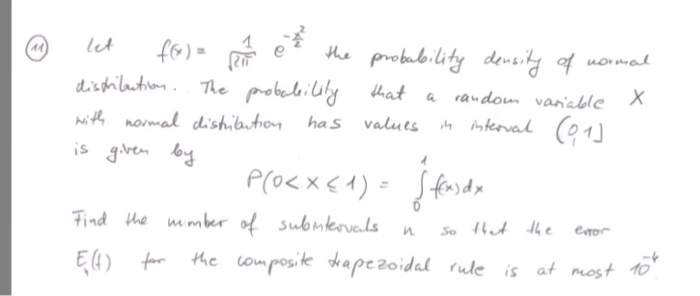 11 let f(x) = 1/√2π e^-x²/2 the probability density of normal
distribution. The probability that a random variable X
with normal distribution has values in interval (0,1]
is given by
P(0<X≤1) = ∫₀¹ f(x)dx
Find the number of subintervals n so that the error
for the composite trapezoidal rule is at most 10⁻⁴